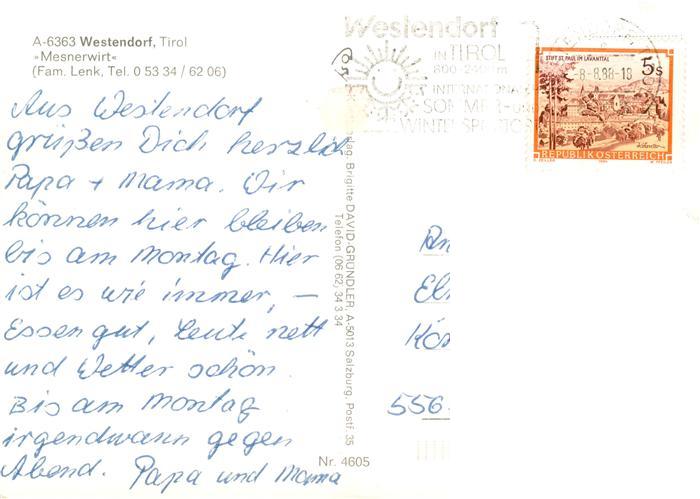 A-6363 Westendorf, Tirol
»Mesnerwirt«
(Fam. Lenk, Tel. 0 53 34 / 62 06)
Aus Westendorf
grüßen Dich herzlich
Papa + Mama. Wir
können hier bleiben
bis am Montag. Hier
ist es wie immer, –
Essen gut, Leute nett
und Wetter schön.
Bis am Montag
irgendwann gegen
Abend. Papa und Mama
Verlag: Brigitte DAVID-GRÜNDLER, A-5013 Salzburg, Postf. 35
Telefon (06 62) 34 3 34
Nr. 4605
Westendorf
IN TIROL
800-2400 m
INTERNATIONAL
SOMMER-U.
WINTERSPORTORT
-8.-8.88-18
STIFT ST. PAUL IM LAVANTTAL
5s
REPUBLIK ÖSTERREICH
An
El
Kös
556